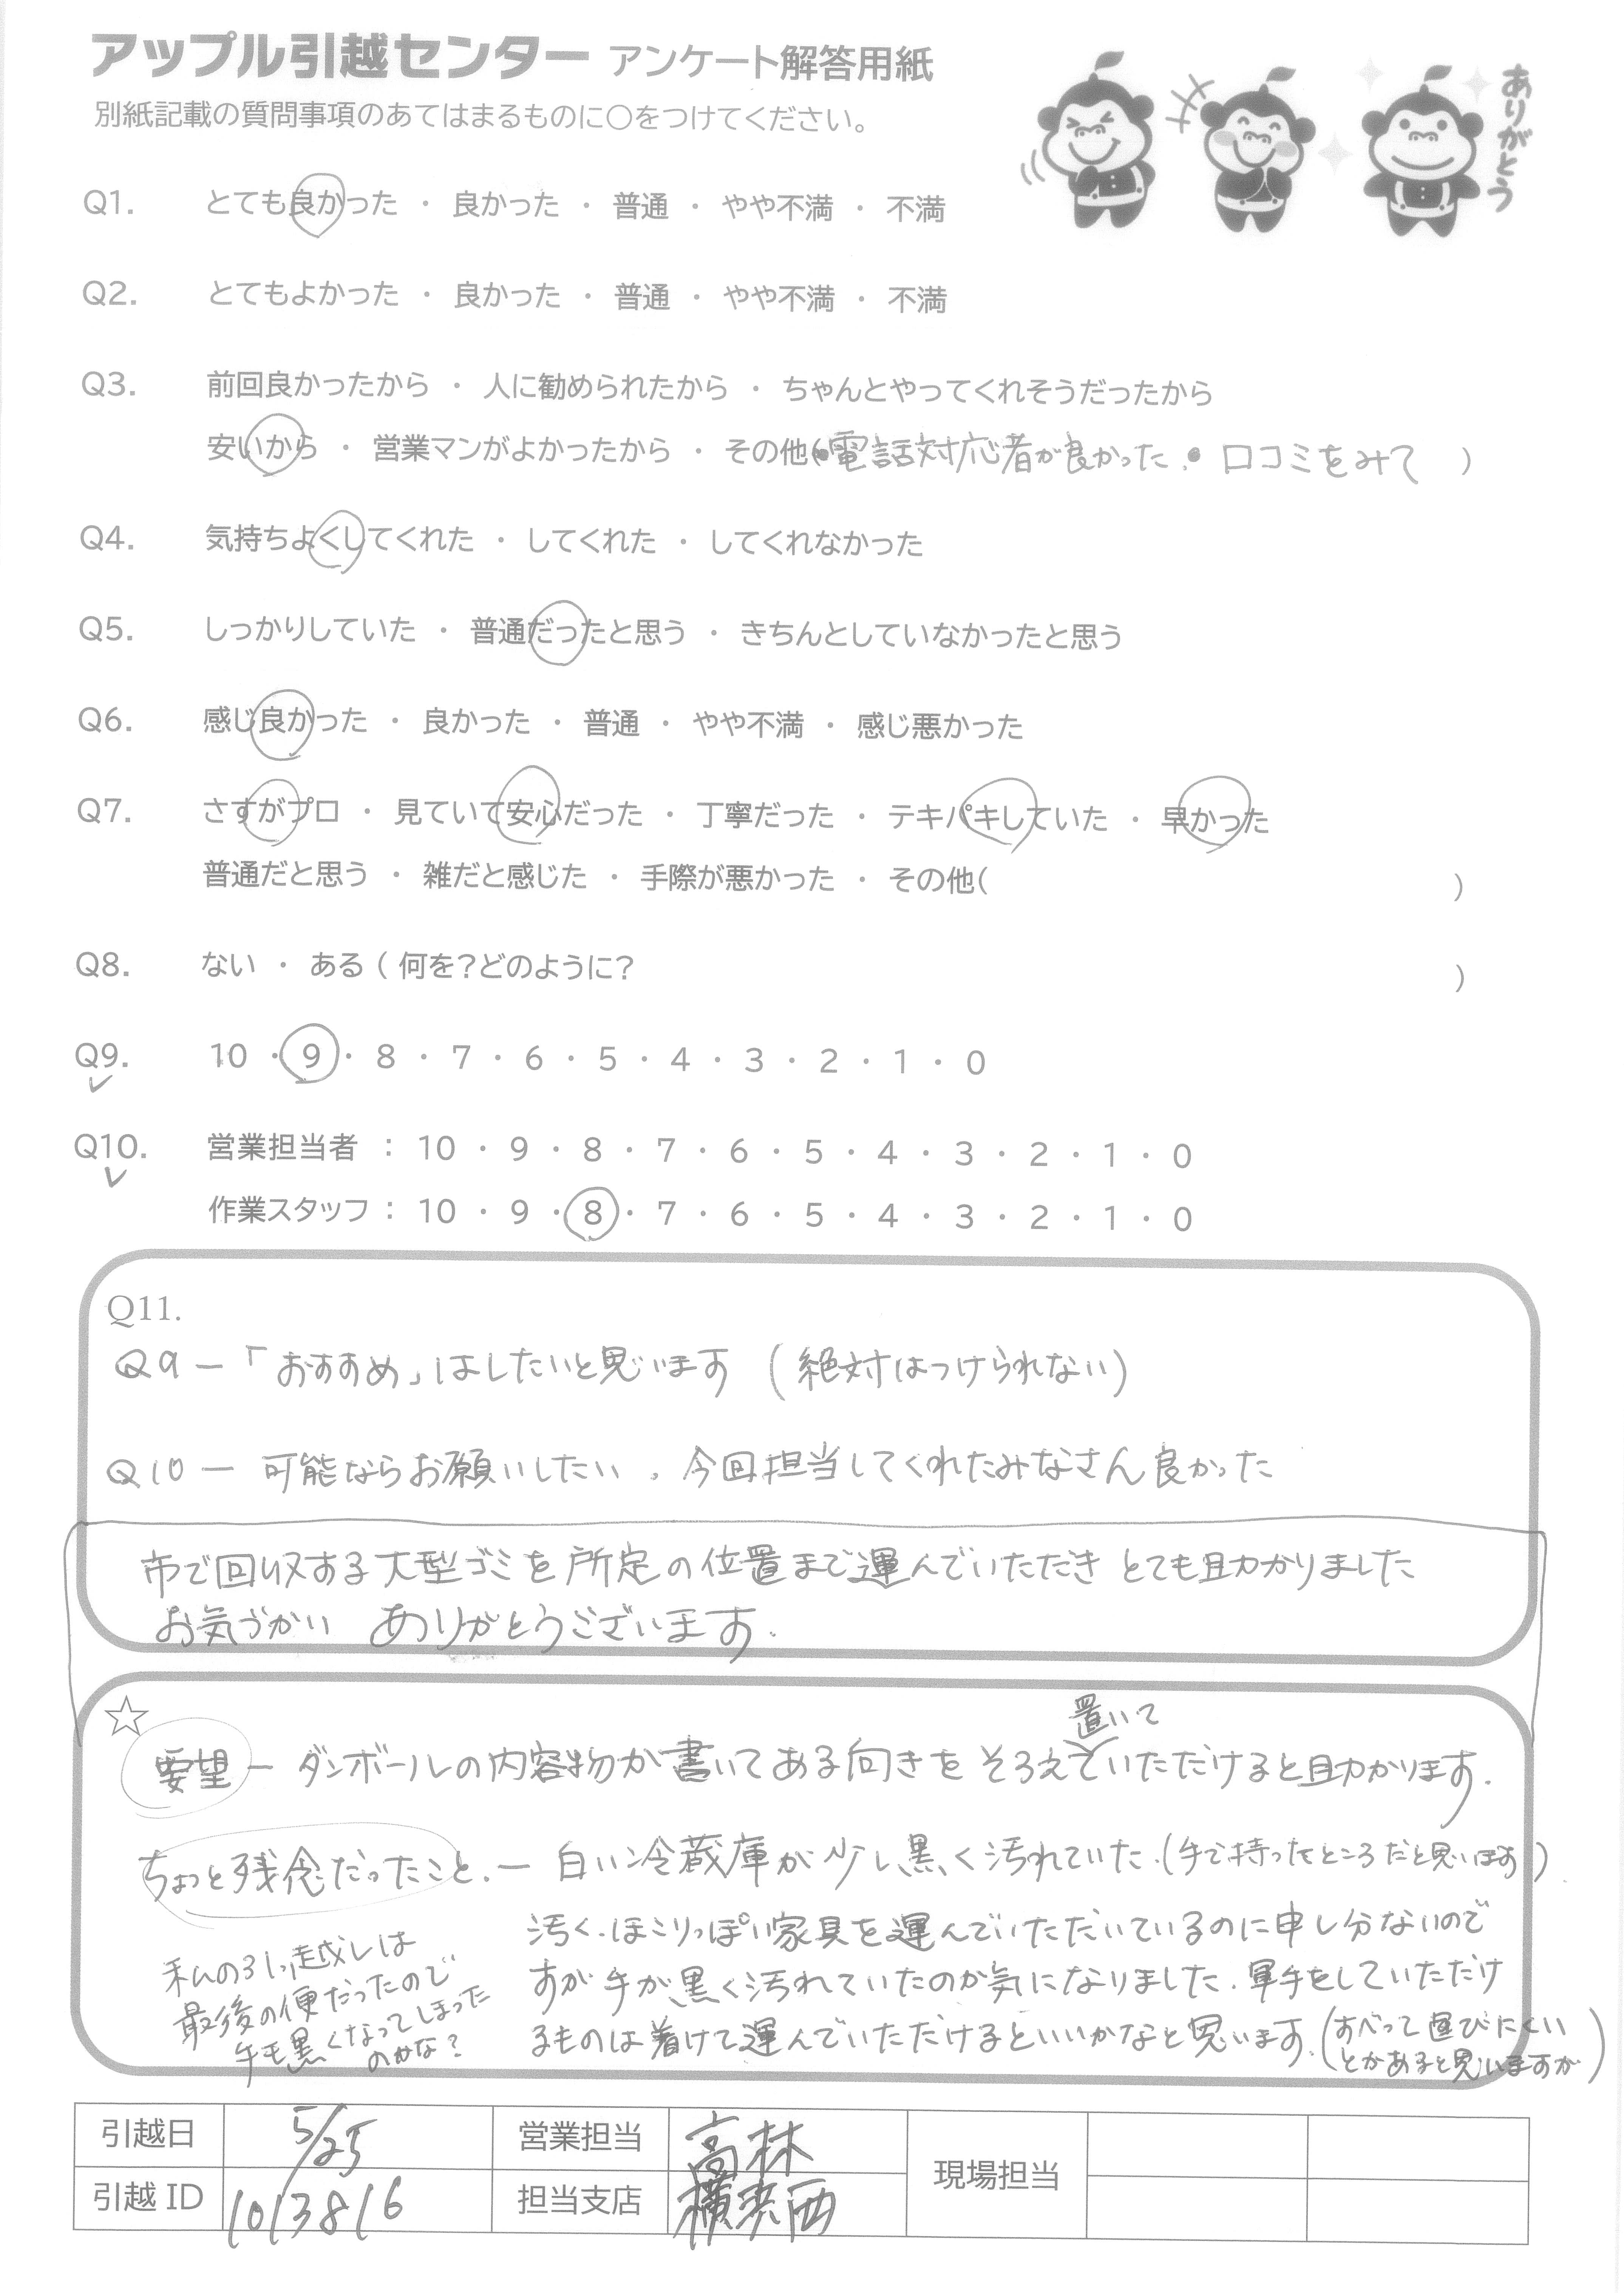 アップル引越センター アンケート解答用紙
ありがとう
別紙記載の質問事項のあてはまるものに○をつけてください。
Q1. とても良かった ・ 良かった ・ 普通 ・ やや不満 ・ 不満
Q2. とてもよかった ・ 良かった ・ 普通 ・ やや不満 ・ 不満
Q3. 前回良かったから ・ 人に勧められたから ・ ちゃんとやってくれそうだったから
安いから ・ 営業マンがよかったから ・ その他(•電話対応者が良かった.• 口コミをみて )
Q4. 気持ちよくしてくれた ・ してくれた ・ してくれなかった
Q5. しっかりしていた ・ 普通だったと思う ・ きちんとしていなかったと思う
Q6. 感じ良かった ・ 良かった ・ 普通 ・ やや不満 ・ 感じ悪かった
Q7. さすがプロ ・ 見ていて安心だった ・ 丁寧だった ・ テキパキしていた ・ 早かった
普通だと思う ・ 雑だと感じた ・ 手際が悪かった ・ その他( )
Q8. ない ・ ある ( 何を?どのように? )
Q9. 10 ・ 9 ・ 8 ・ 7 ・ 6 ・ 5 ・ 4 ・ 3 ・ 2 ・ 1 ・ 0
Q10. 営業担当者 : 10 ・ 9 ・ 8 ・ 7 ・ 6 ・ 5 ・ 4 ・ 3 ・ 2 ・ 1 ・ 0
作業スタッフ : 10 ・ 9 ・ 8 ・ 7 ・ 6 ・ 5 ・ 4 ・ 3 ・ 2 ・ 1 ・ 0
Q11.
Q9 ー 「おすすめ」はしたいと思います (絶対はつけられない)
Q10 ー 可能ならお願いしたい。今回担当してくれたみなさん良かった
市で回収する大型ゴミを所定の位置まで運んでいただき とても助かりました
お気づかい ありがとうございます.
☆
置いて
要望 ー ダンボールの内容物が書いてある向きを そろえていただけると助かります.
ちょっと残念だったこと. ー 白い冷蔵庫が少し黒く汚れていた.(手で持ったところだと思います)
汚く.ほこりっぽい家具を運んでいただいているのに申し分ないので
すが 手が黒く汚れていたのが気になりました. 軍手をしていただけ
るものは着けて運んでいただけるといいかなと思います.(すべって運びにくい
とかあると思いますが)
私の引っ越しは
最後の便だったので
手も黒くなってしまった
のかな?
引越日 5/25 営業担当 高林 現場担当
引越 ID 1013816 担当支店 横浜西